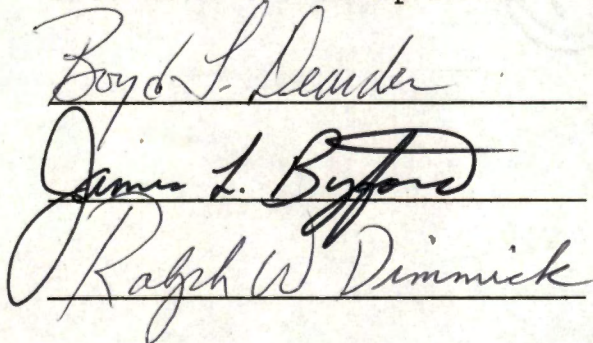 Boyd L. Dearden
James L. Byford
Ralph W Dimmick